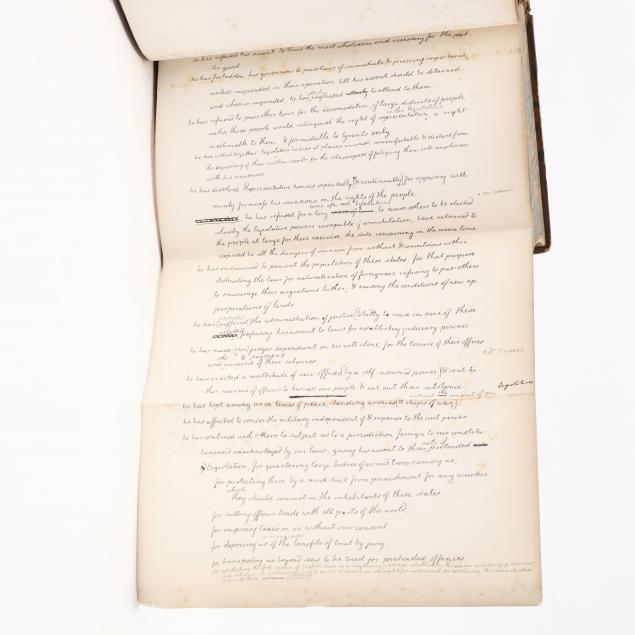 he has refused his assent to laws the most wholesome and necessary for the pub-
lic good.
he has forbidden his governors to pass laws of immediate & pressing importance,
unless suspended in their operation till his assent should be obtained,
and when so suspended, he has neglected utterly to attend to them.
he has refused to pass other laws for the accomodation of large districts of people
unless those people would relinquish the right of representation, a right
in the legislature
inestimable to them & formidable to tyrants only
he has called together legislative bodies at places unusual, uncomfortable & distant from
the depository of their public records for the sole purpose of fatiguing them into compliance
with his measures.
he has dissolved Representative houses repeatedly [& continually] for opposing with
manly firmness his invasions on the rights of the people
time after such dissolutions
he has refused for a long space of time to cause others to be elected
whereby the legislative powers incapable of annihilation, have returned to
the people at large for their exercise, the state remaining in the mean time
exposed to all the dangers of invasion from without & convulsions within
he has endeavored to prevent the population of these states, for that purpose
obstructing the laws for naturalization of foreigners refusing to pass others
to encourage their migrations hither, & raising the conditions of new ap-
propriations of lands
he has [suffered] the administration of justice [totally to cease in some of these
refusing his assent to laws for establishing judiciary powers.
he has made [our] judges dependent on his will alone, for the tenure of their offices
the & payment
and amount of their salaries.
he has erected a multitude of new offices [by a self-assumed power] & sent hi-
ther swarms of officers to harrass our people & eat out their substance
without the consent of our legislatures
he has kept among us in times of peace standing armies [& ships of war].
he has affected to render the military independent of & superior to the civil power
he has combined with others to subject us to a jurisdiction foreign to our constitu-
tions and unacknoleged by our laws; giving his assent to their pretended
acts of
legislation, for quartering large bodies of armed troops among us;
for protecting them by a mock trial from punishment for any murders
which
they should commit on the inhabitants of these states;
for cutting off our trade with all parts of the world;
for imposing taxes on us without our consent;
in many cases
for depriving us of the benefits of trial by jury;
for transporting us beyond seas to be tried for pretended offences